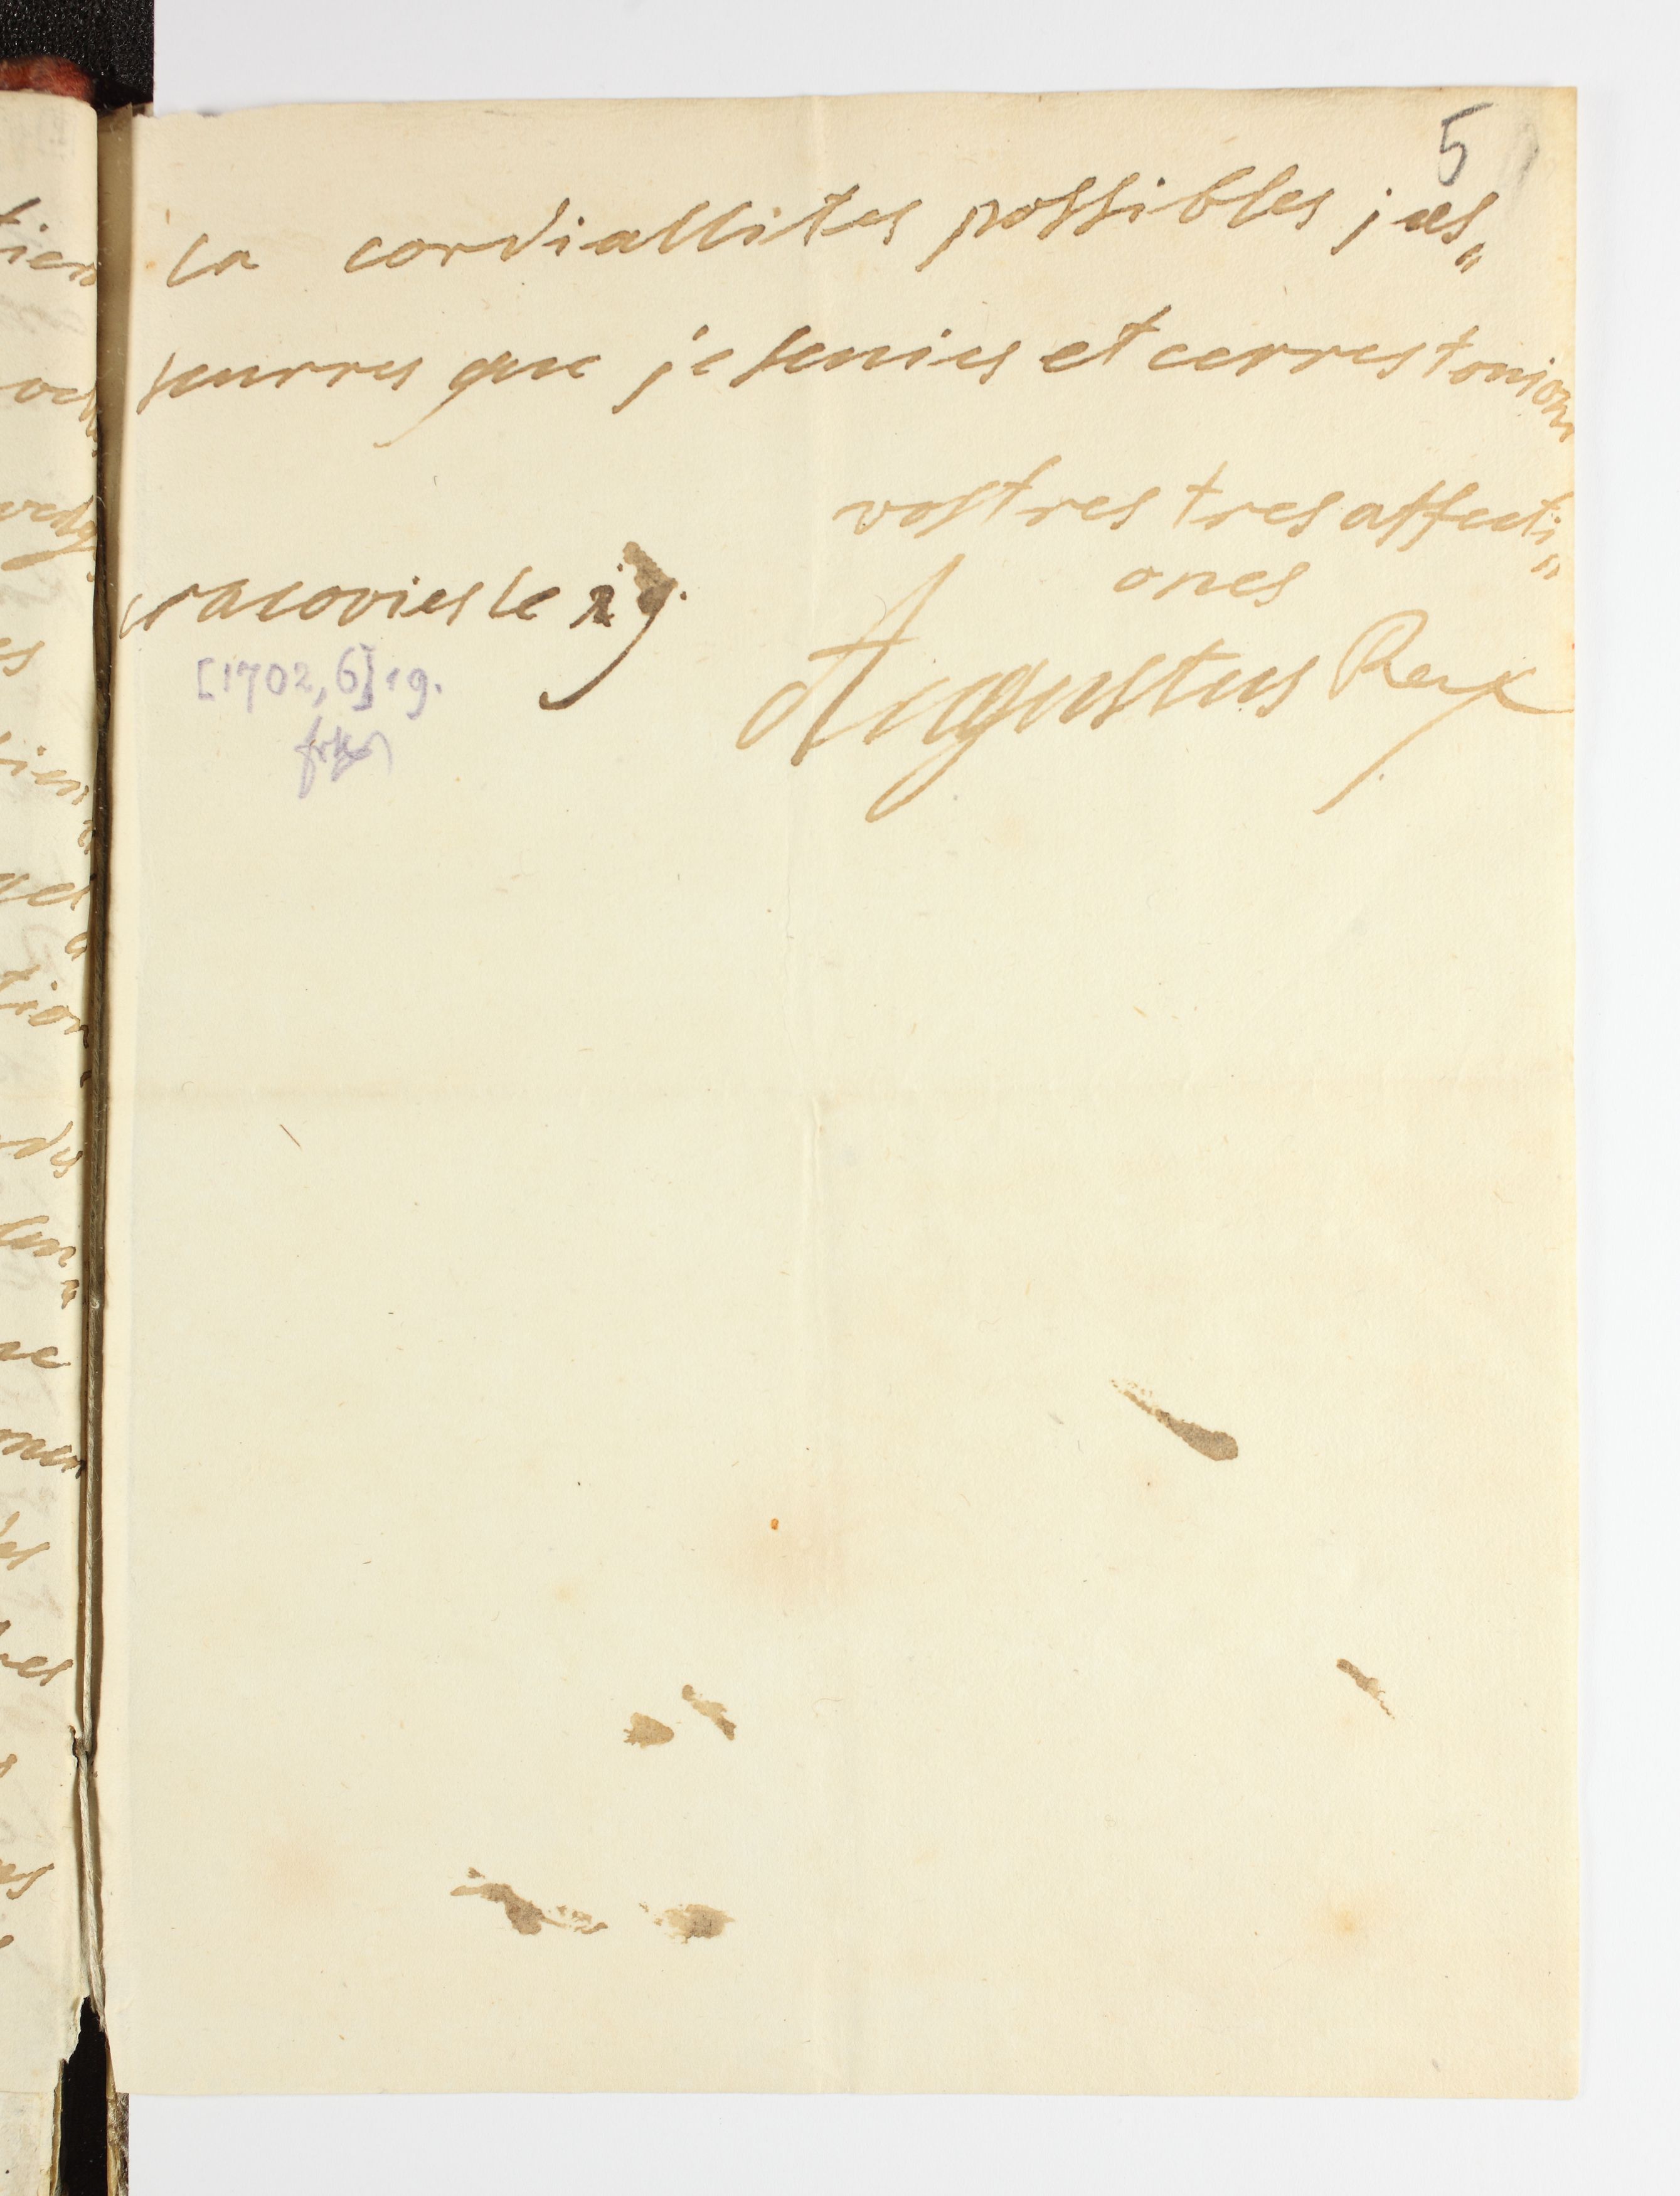 5
la cordiallites possibles j aes„
seurres que je senies et cerres toujour
vostres tres affecti„
ones
cracovies le 19.
Augustus Rex
[1702, 6] 19.